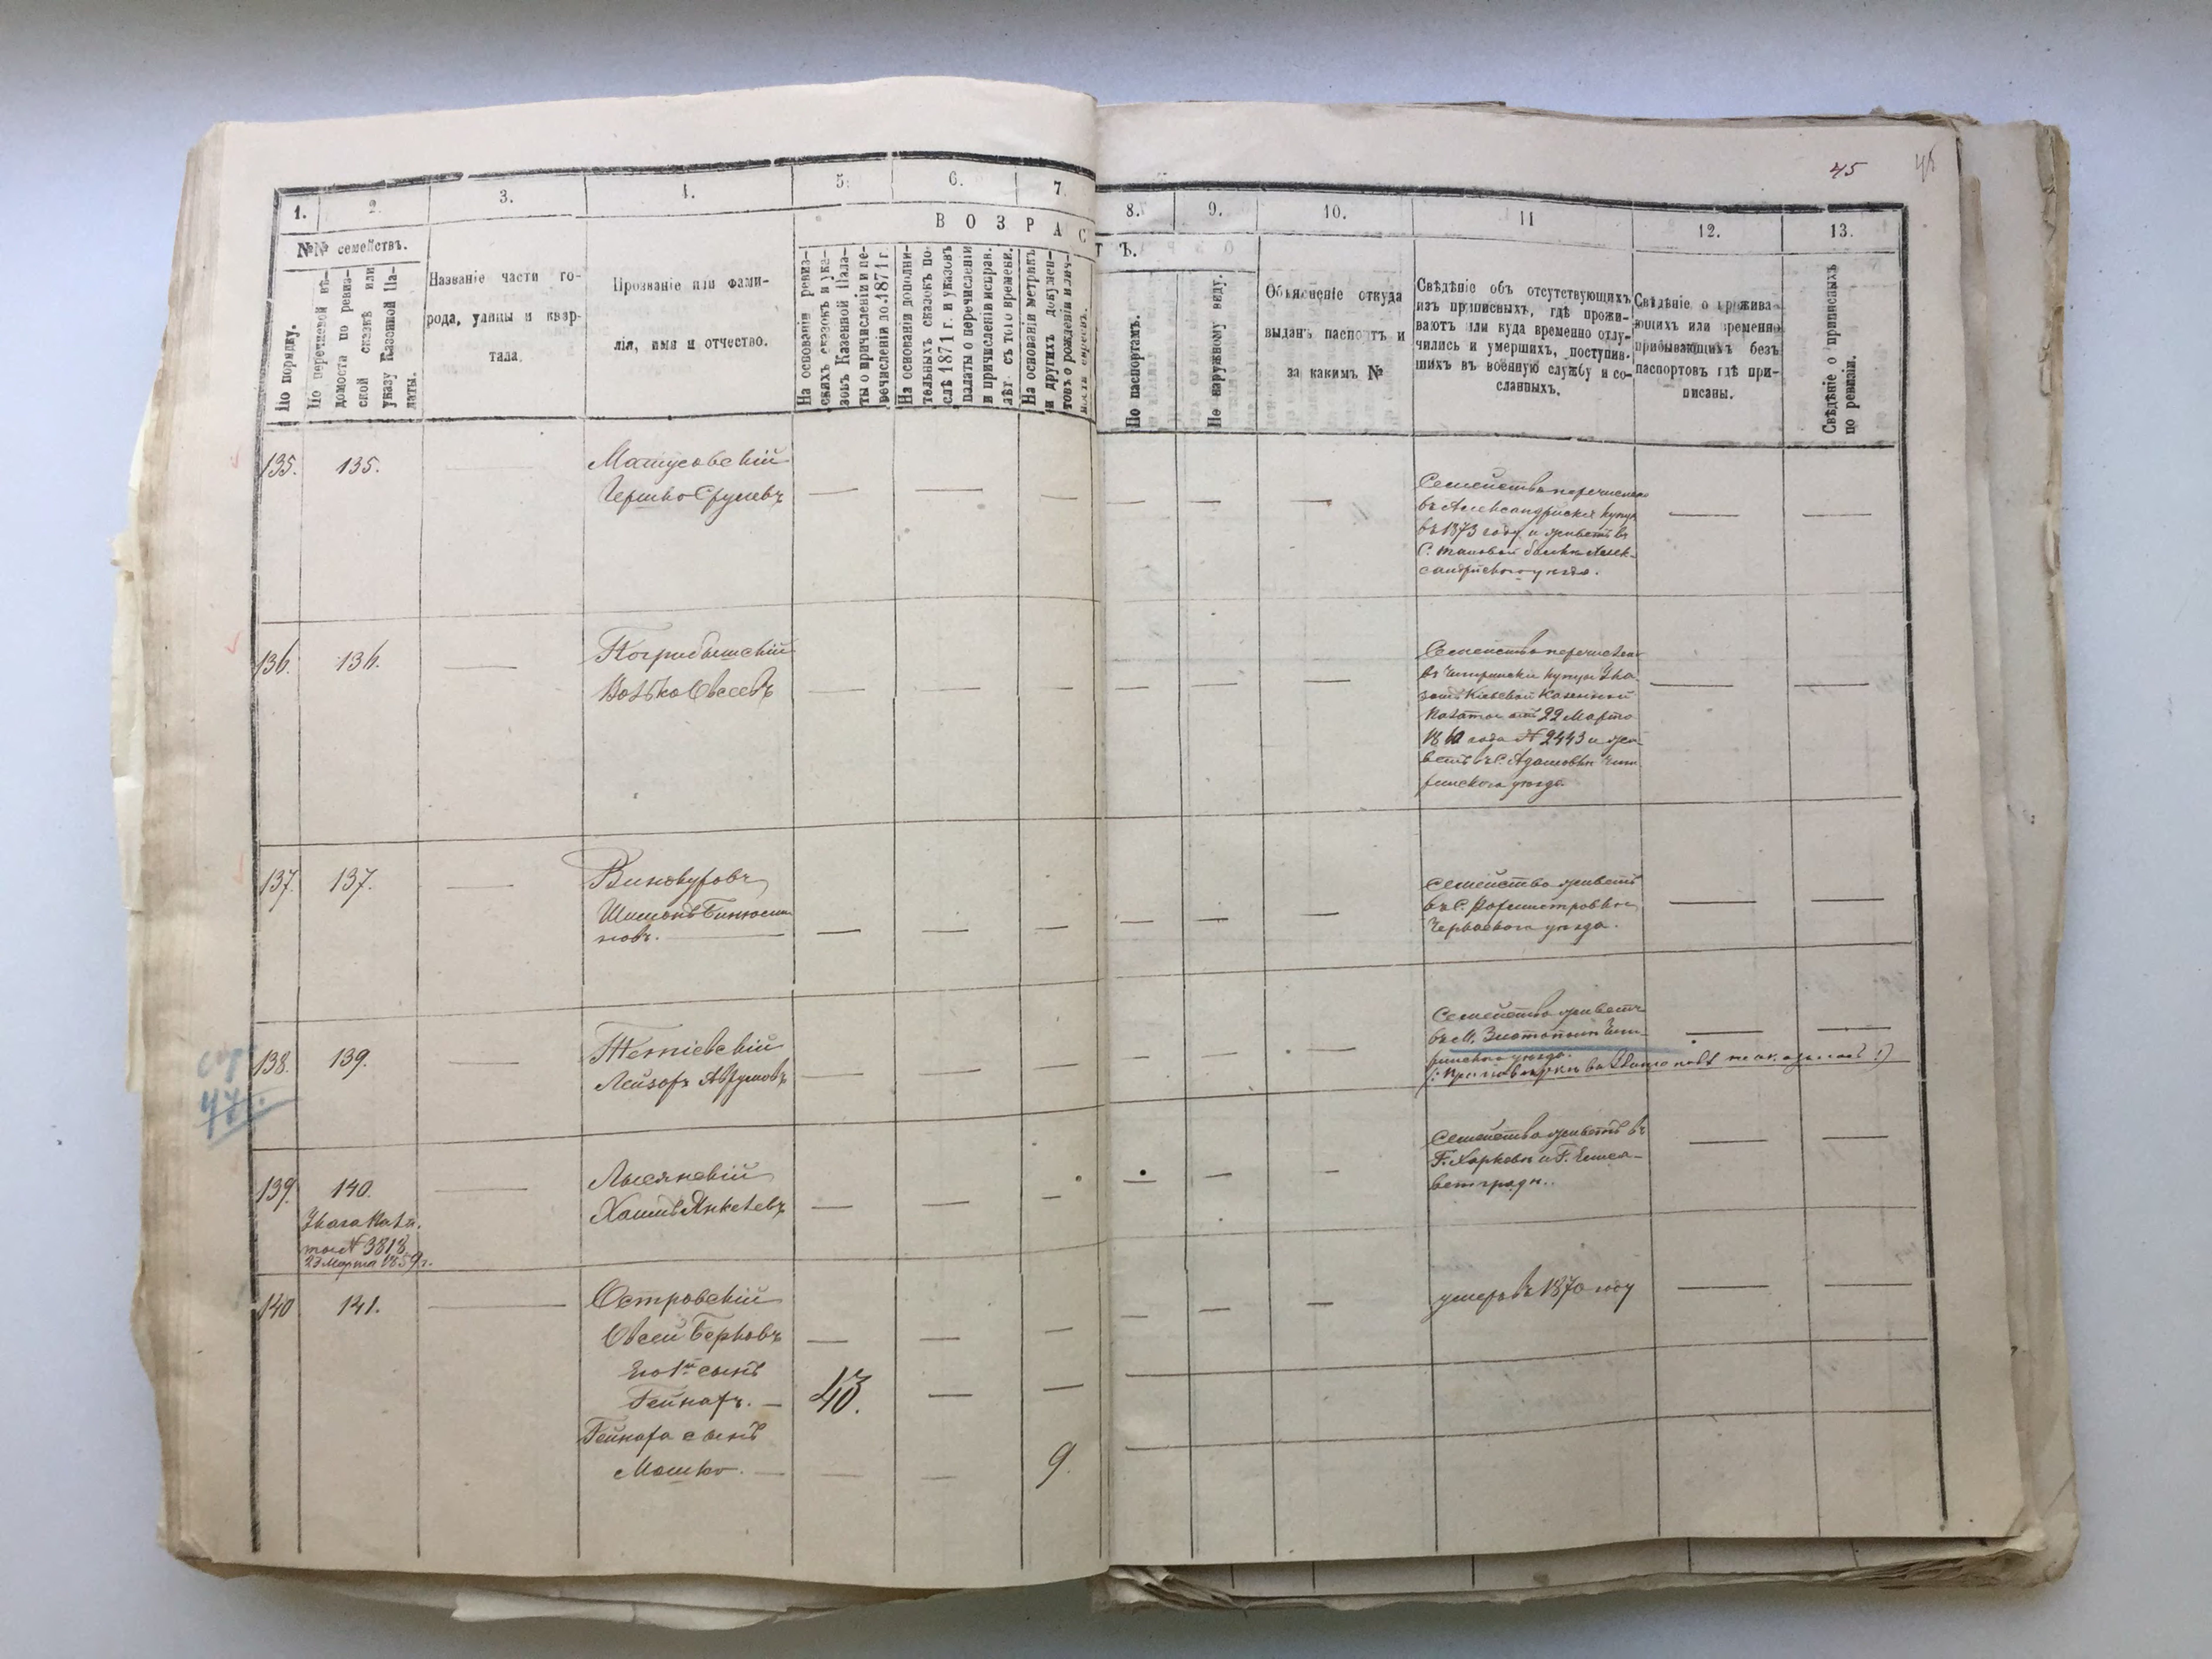 45
1. 2. 3. 4. 5. 6. 7. 8. 9. 10. 11 12. 13.
№№ семействъ.
По порядку.
По перечневой вѣ-
домости по ревиз-
ской сказкѣ или
указу Казенной Па-
латы.
Названіе части го-
рода, улицы и квар-
тала.
Прозваніе или фами-
лія, имя и отчество.
ВОЗРАСТЪ.
На основаніи ревиз-
скихъ сказокъ и ука-
зовъ Казенной Пала-
ты о причисленіи и пе-
речисленіи до 1871 г.
На основаніи дополни-
тельныхъ сказокъ по-
слѣ 1871 г. и указовъ
палаты о перечисленіи
и причисленіи исправ.
лѣт. съ того времени.
На основаніи метрикъ
и другихъ докумен-
товъ о рожденіи и лич-
По паспортамъ.
По наружному виду.
Объясненіе откуда
выданъ паспортъ и
за какимъ №
Свѣдѣніе объ отсутствующихъ
изъ приписныхъ, гдѣ прожи-
ваютъ или куда временно отлу-
чились и умершихъ, поступив-
шихъ въ военную службу и со-
сланныхъ.
Свѣдѣніе о прожива-
ющихъ или временно
прибывающихъ безъ
паспортовъ гдѣ при-
писаны.
Свѣдѣніе о приписныхъ
по ревизіи.
135. 135. —
Матусовскій
Гершко Срулевъ — — — — — —
Семейство перечислено
въ Александрійскіе купцы
въ 1873 году и живетъ въ
С. балки Алек-
сандрійского уѣзда. — —
136. 136. —
Погребыщскій
Волько Овсеевъ — — — — — —
Семейство перечислено
въ Чигиринскіе купцы Ука-
зомъ Кіевской Казенной
Палаты отъ 22 Марта
года № 2443 и жи-
ветъ въ С. Адамовкѣ Чиги-
ринского уѣзда. — —
137. 137. —
Винокуровъ
Шимонъ Бинюми-
новъ. — — — — — — —
Семейство живетъ
въ С.
Черкаского уѣзда. — —
138. 139. —
Лейзоръ Аврумовъ — — — — — —
Семейство живетъ
въ М. Златополѣ Чиги-
ринского уѣзда. — —
139. 140. —
Указа Пала-
ты № 3818
23 Марта 1859 г.
Лысянскій
Хаимъ Янкелевъ — — — — — —
Семейство живетъ въ
Г. Харковѣ и Г. Елиса-
ветградѣ. — —
140 141. —
Островскій
Овсей Берковъ — — — — — —
умеръ въ 1870 году — —
Его 1й сынъ
Гейнахъ. — 43. — —
Гейнаха сынъ
Мошко. — — — 9.